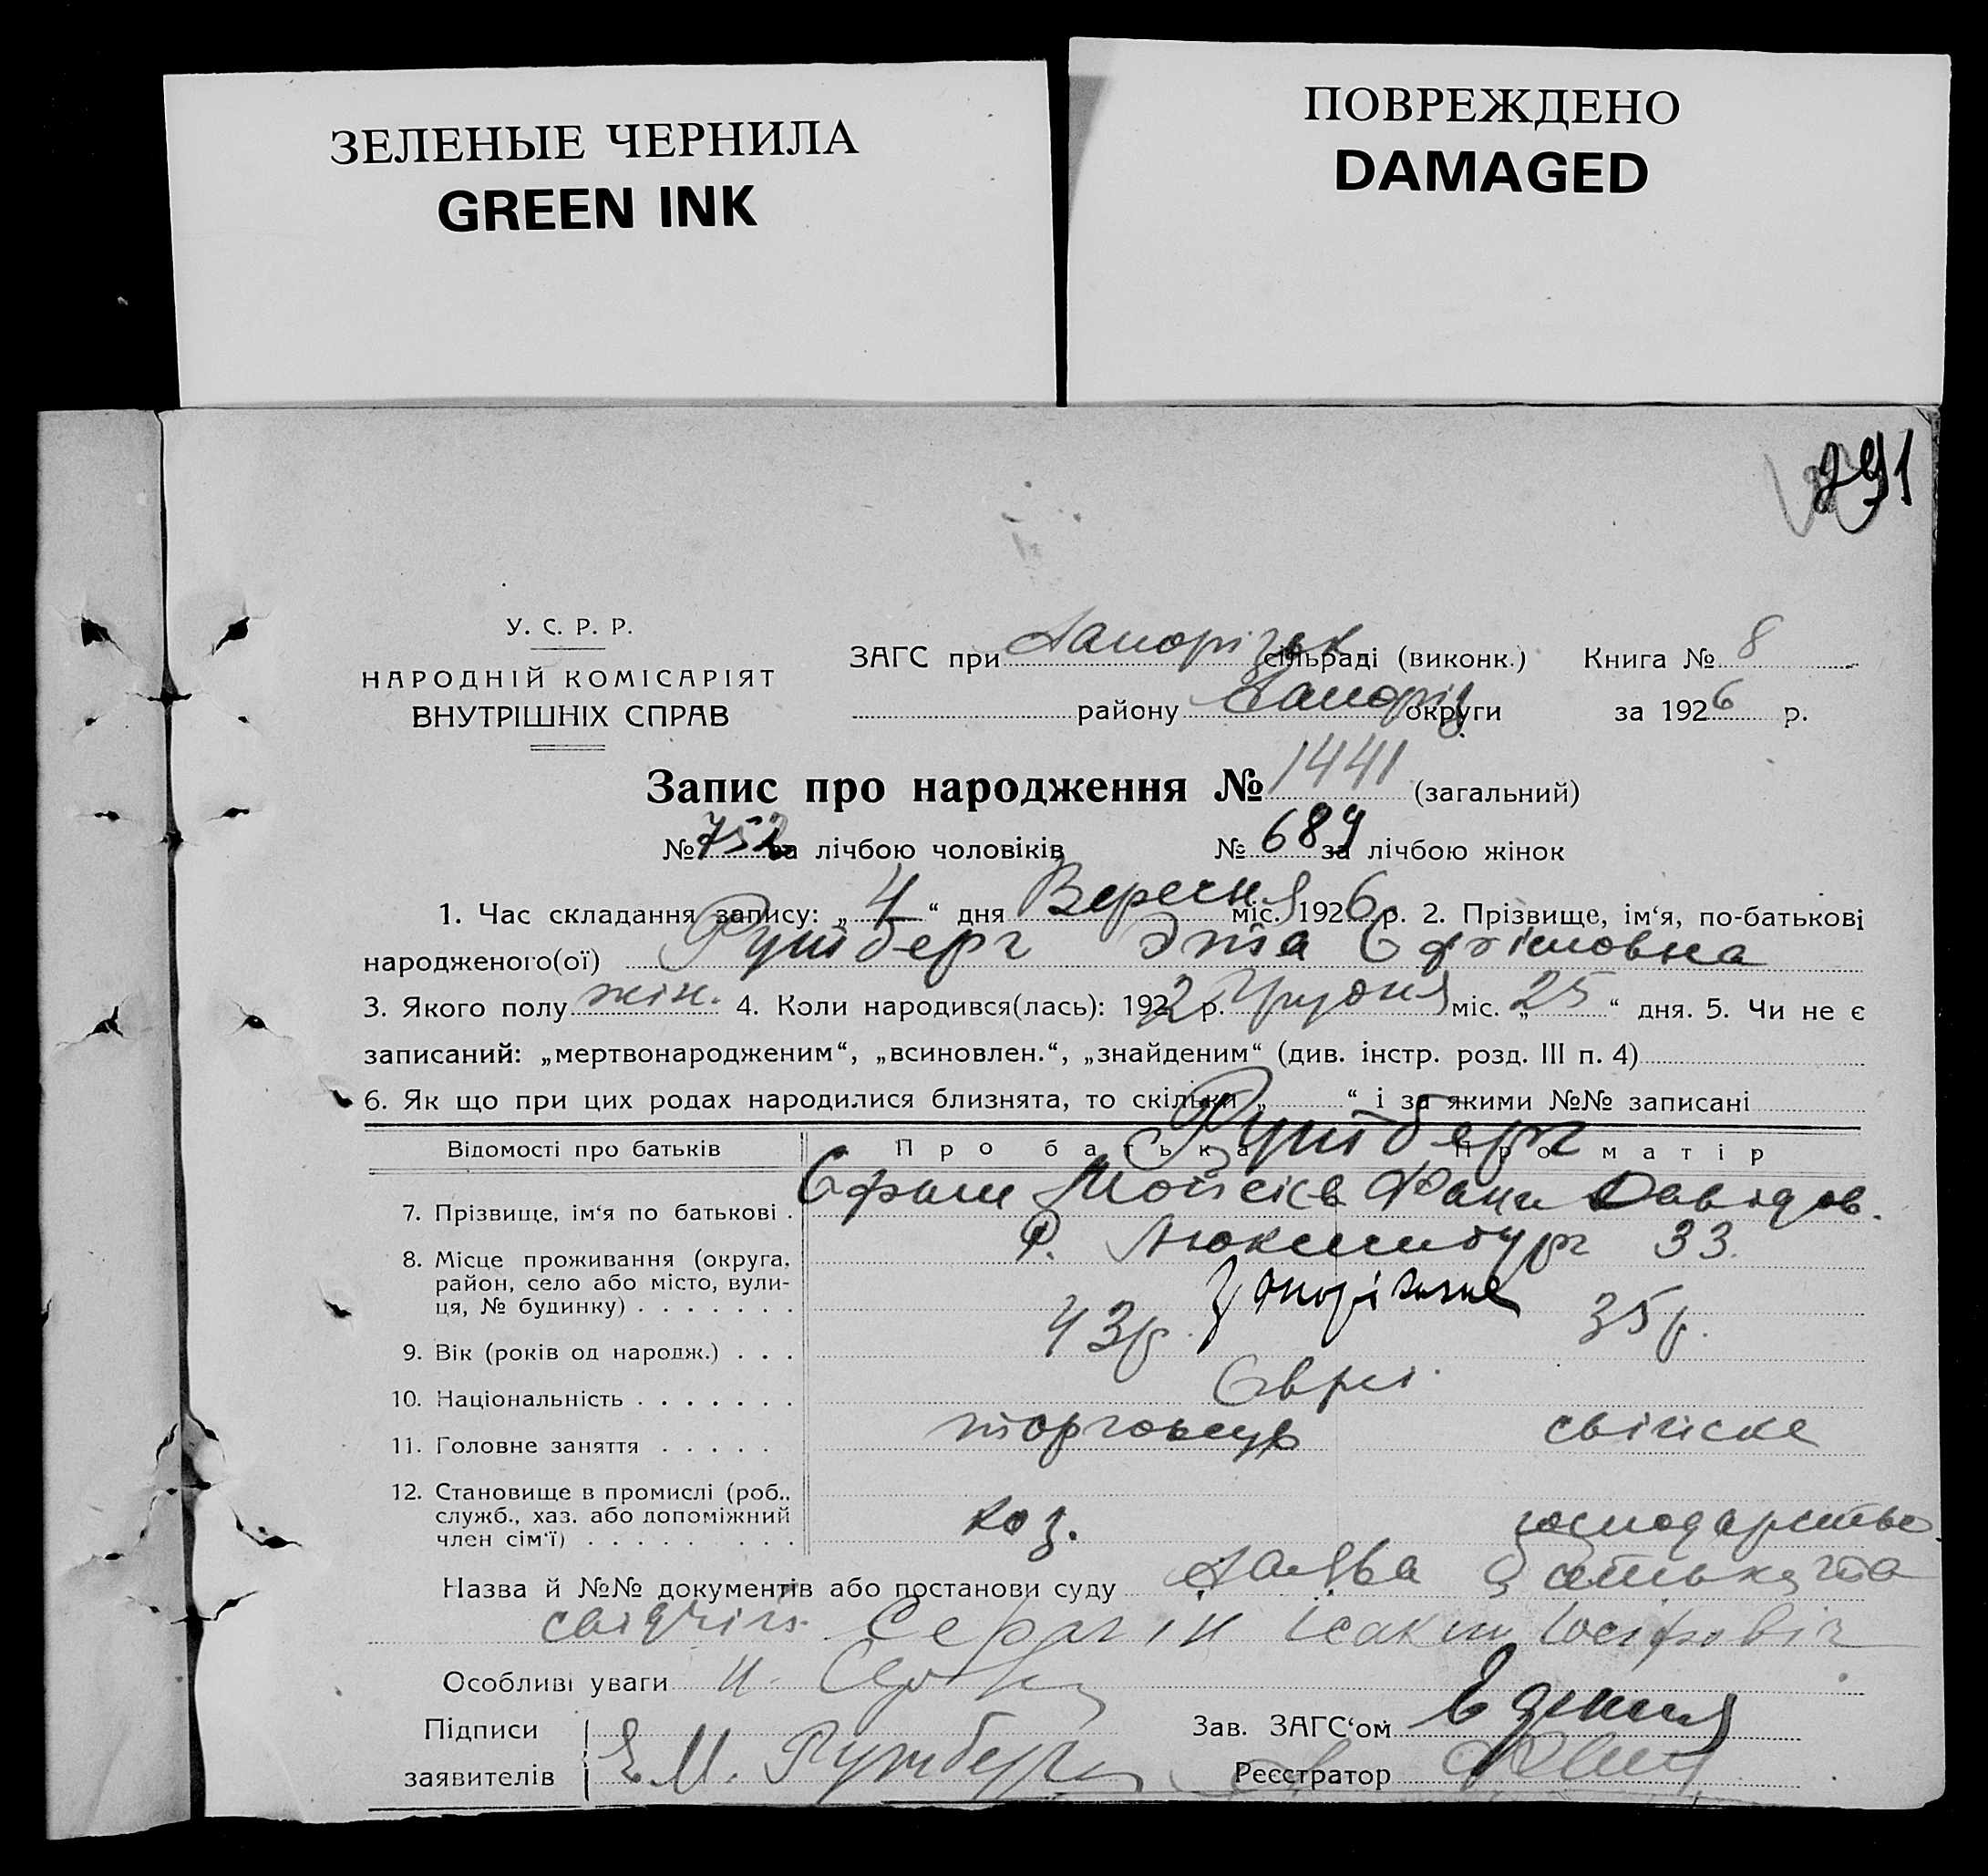 ЗЕЛЕНЫЕ ЧЕРНИЛА
GREEN INK
ПОВРЕЖДЕНО
DAMAGED
291
У. С. Р. Р.
НАРОДНІЙ КОМІСАРІЯТ
ВНУТРІШНІХ СПРАВ
ЗАГС при Запорізьк. сільраді (виконк.) Книга № 8
району Запоріз. округи за 1926 р.
Запис про народження № 1441 (загальний)
№ 752 за лічбою чоловіків № 689 за лічбою жінок
1. Час складання запису: „4“ дня Вересня міс. 1926 р. 2. Прізвище, ім‘я, по-батькові
народженого(ої) Рутберг Эта Єфімовна
3. Якого полу жін. 4. Коли народився(лась): 1922 р. Грудня міс. „25“ дня. 5. Чи не є
записаний: „мертвонародженим“, „всиновлен.“, „знайденим“ (див. інстр. розд. III п. 4)
6. Як що при цих родах народилися близнята, то скільки „ “ і за якими №№ записані
Відомості про батьків Про батька Про матір
Рутберг
7. Прізвище, ім‘я по батькові . Єфраим Мойсієв Фаня Давидов.
8. Місце проживання (округа, район, село або місто, вулиця, № будинку) . . . . . . . Р. Люксембург 33.
Запоріжжя
9. Вік (років од народж.) . . . 43р. 35р.
10. Національність . . . . . . . Євреі.
11. Головне заняття . . . . . торговець свійське
12. Становище в промислі (роб., служб., хаз. або допоміжний член сім‘ї) . . . . . . . . . хоз. господарство.
Назва й №№ документів або постанови суду Заява батька та
свідчів. Ісак Іосіфовіч
Особливі уваги И.
Підписи
заявителів Е. М. Рутберг
Зав. ЗАГС‘ом
Реєстратор